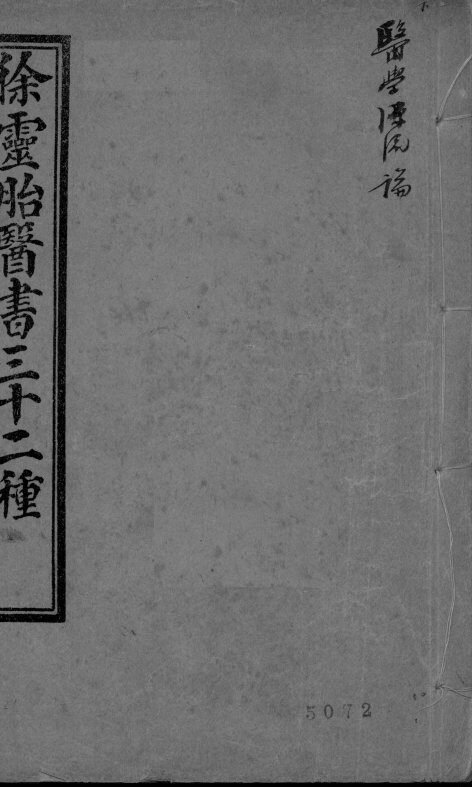 醫學源流論
徐靈胎醫書三十二種
5072